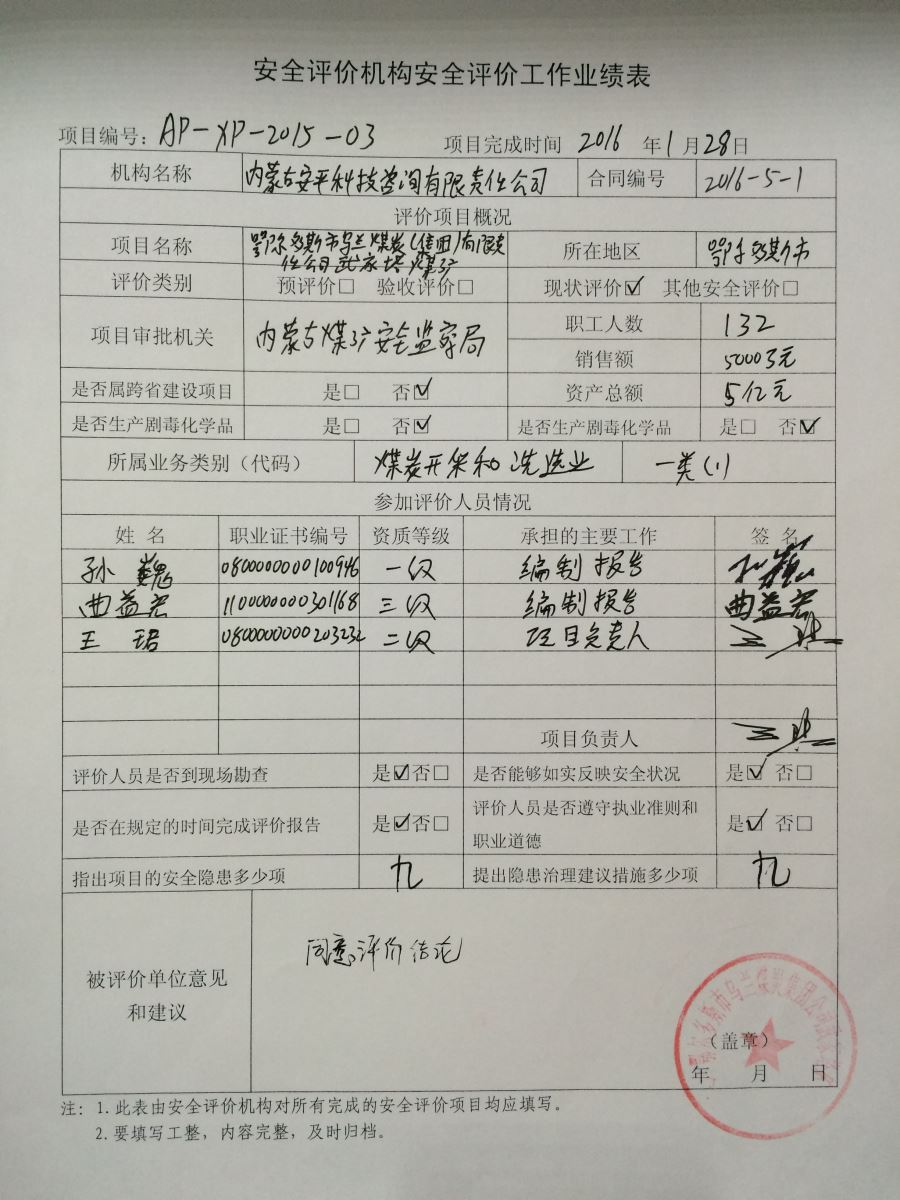 安全评价机构安全评价工作业绩表
项目编号：AP-XP-2015-03 项目完成时间 2016 年 1 月 28 日
机构名称 内蒙古安平科技咨询有限责任公司 合同编号 2016-5-1
评价项目概况
项目名称 鄂尔多斯市乌兰煤炭(集团)有限责
任公司武家塔煤矿 所在地区 鄂尔多斯市
评价类别 预评价□ 验收评价□ 现状评价☑ 其他安全评价□
项目审批机关 内蒙古煤矿安全监察局 职工人数 132
销售额 5000万元
是否属跨省建设项目 是□ 否☑ 资产总额 5亿元
是否生产剧毒化学品 是□ 否☑ 是否生产剧毒化学品 是□ 否☑
所属业务类别（代码） 煤炭开采和洗选业 一类(1)
参加评价人员情况
姓 名 职业证书编号 资质等级 承担的主要工作 签 名
孙巍 0800000000100946 一级 编制报告 孙巍
曲益宏 1100000000301168 三级 编制报告 曲益宏
王珺 0800000000203232 二级 项目负责人
项目负责人
评价人员是否到现场勘查 是☑否□ 是否能够如实反映安全状况 是☑ 否□
是否在规定的时间完成评价报告 是☑否□ 评价人员是否遵守执业准则和
职业道德 是☑ 否□
指出项目的安全隐患多少项 九 提出隐患治理建议措施多少项 九
同意评价结论
被评价单位意见
和建议
（盖章）
年 月 日
注：1.此表由安全评价机构对所有完成的安全评价项目均应填写。
2.要填写工整，内容完整，及时归档。